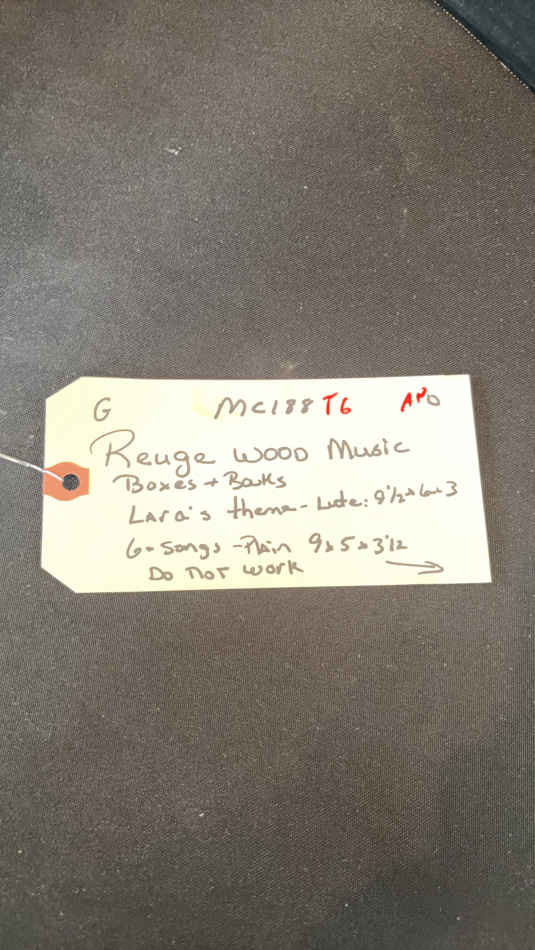 G MC188 T6
Reuge wood Music
Boxes + Books
Lara's theme - Lute: 9 1/2 x 6 x 3
6 - Songs - Plain 9 x 5 x 3 1/2
Do not work →